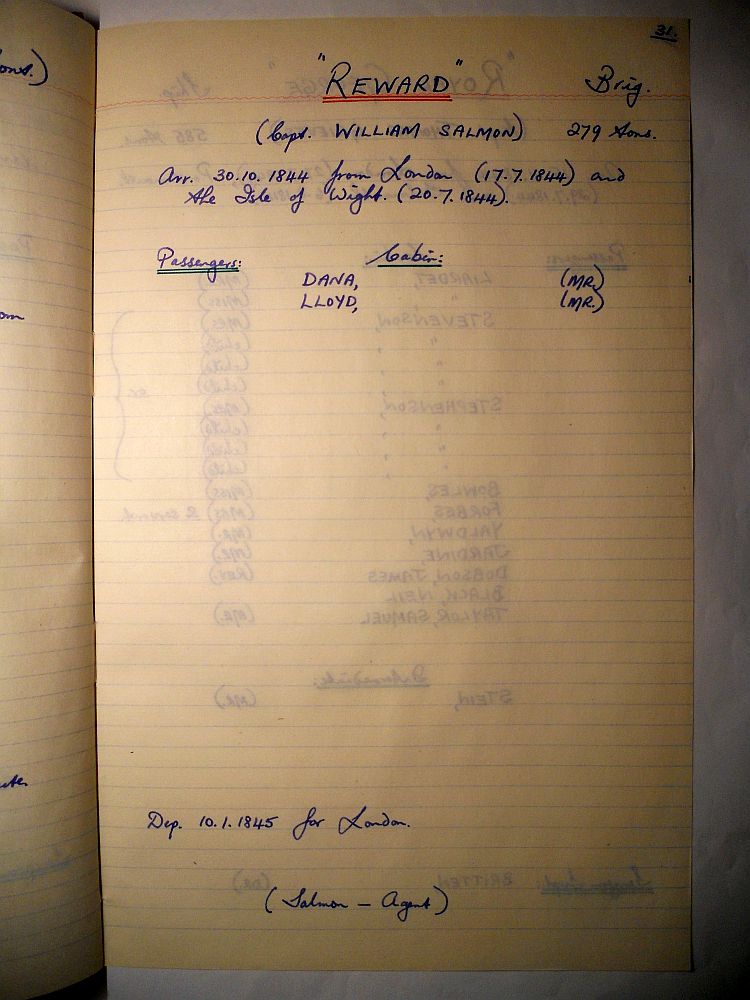 31.
"REWARD" Brig.
(Capt. WILLIAM SALMON) 279 tons.
Arr. 30.10.1844 from London (17.7.1844) and
the Isle of Wight. (20.7.1844).
Passengers: Cabin:
DANA, (MR.)
LLOYD, (MR.)
Dep. 10.1.1845 for London.
(Salmon — Agent)